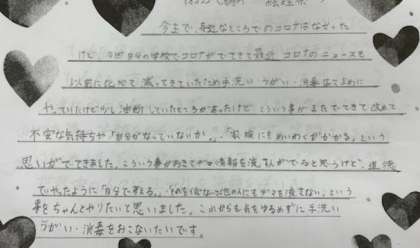 今まで、身近なところでのコロナはなかった
けど、今回自分の学校でコロナがでてきて最近 コロナのニュースも
以前に比べて減ってきていたため手洗い・うがい・消毒などまめに
やっていたけど少し油断していたところがあったけど こういう事がまたでてきて改めて
不安な気持ちや「自分がなっていないか」、「家族にもめいわくがかかる」という
思いがでてきました。こういう事がおきてデマ情報を流す人がでると思うけど、道徳
でやったように「自分で考える。」 他の人にもデマを流さない」という
事をちゃんとやりたいと思いました。これからも気をゆるめずに手洗い
うがい・消毒をおこないたいです。